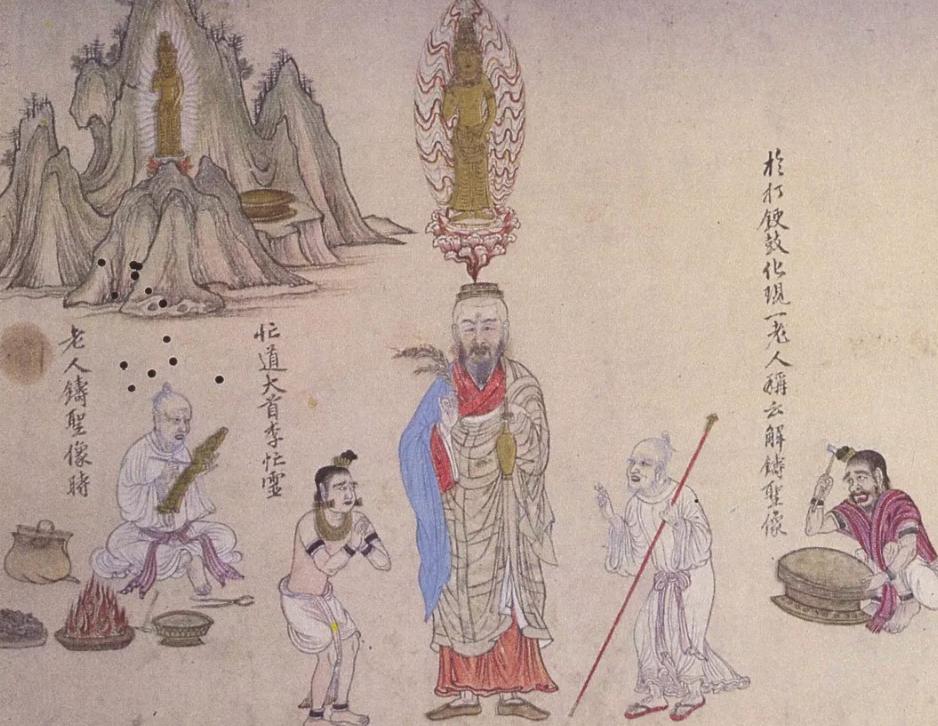 於打䤵鼓化現一老人稱云解鑄聖像
忙道大首李忙靈
老人鑄聖像時